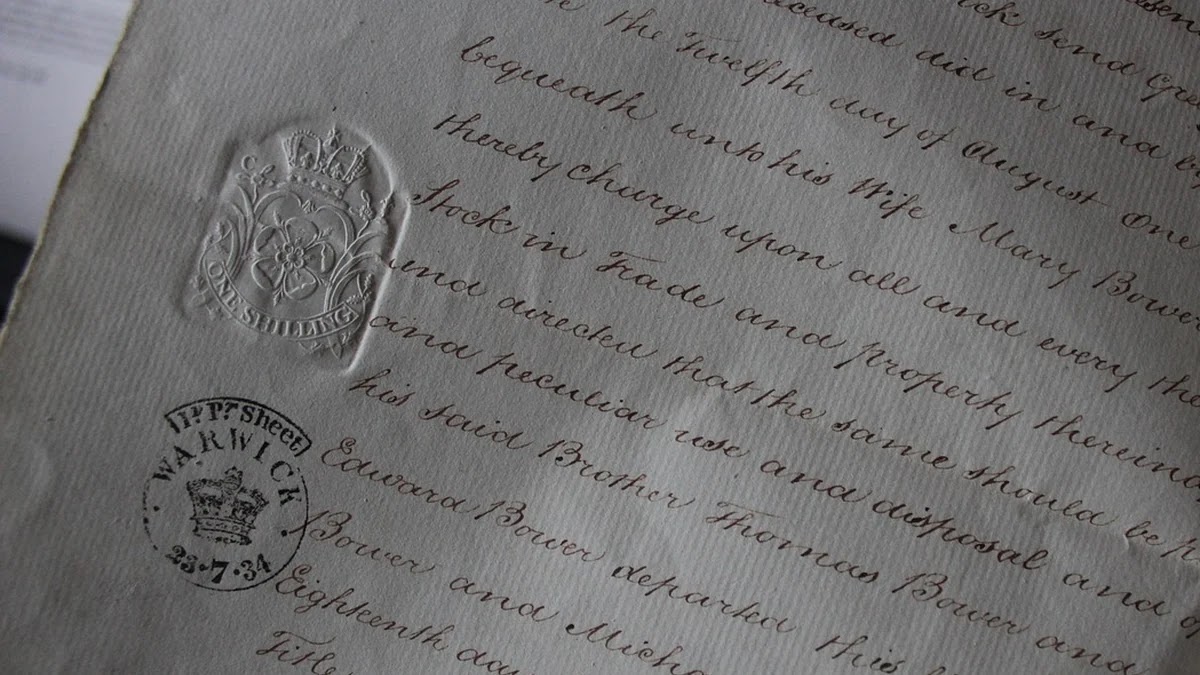 send
did in and
the Twelfth day of August One
bequeath unto his Wife Mary Bower
thereby charge upon all and every the
Stock in Trade and property therein
and directed that the same should be
and peculiar use and disposal and
his said Brother Thomas Bower and
Edward Bower departed this
Bower and Micha
Eighteenth day
Title
ONE SHILLING
Pr Sheet
WARWICK
23·7·34